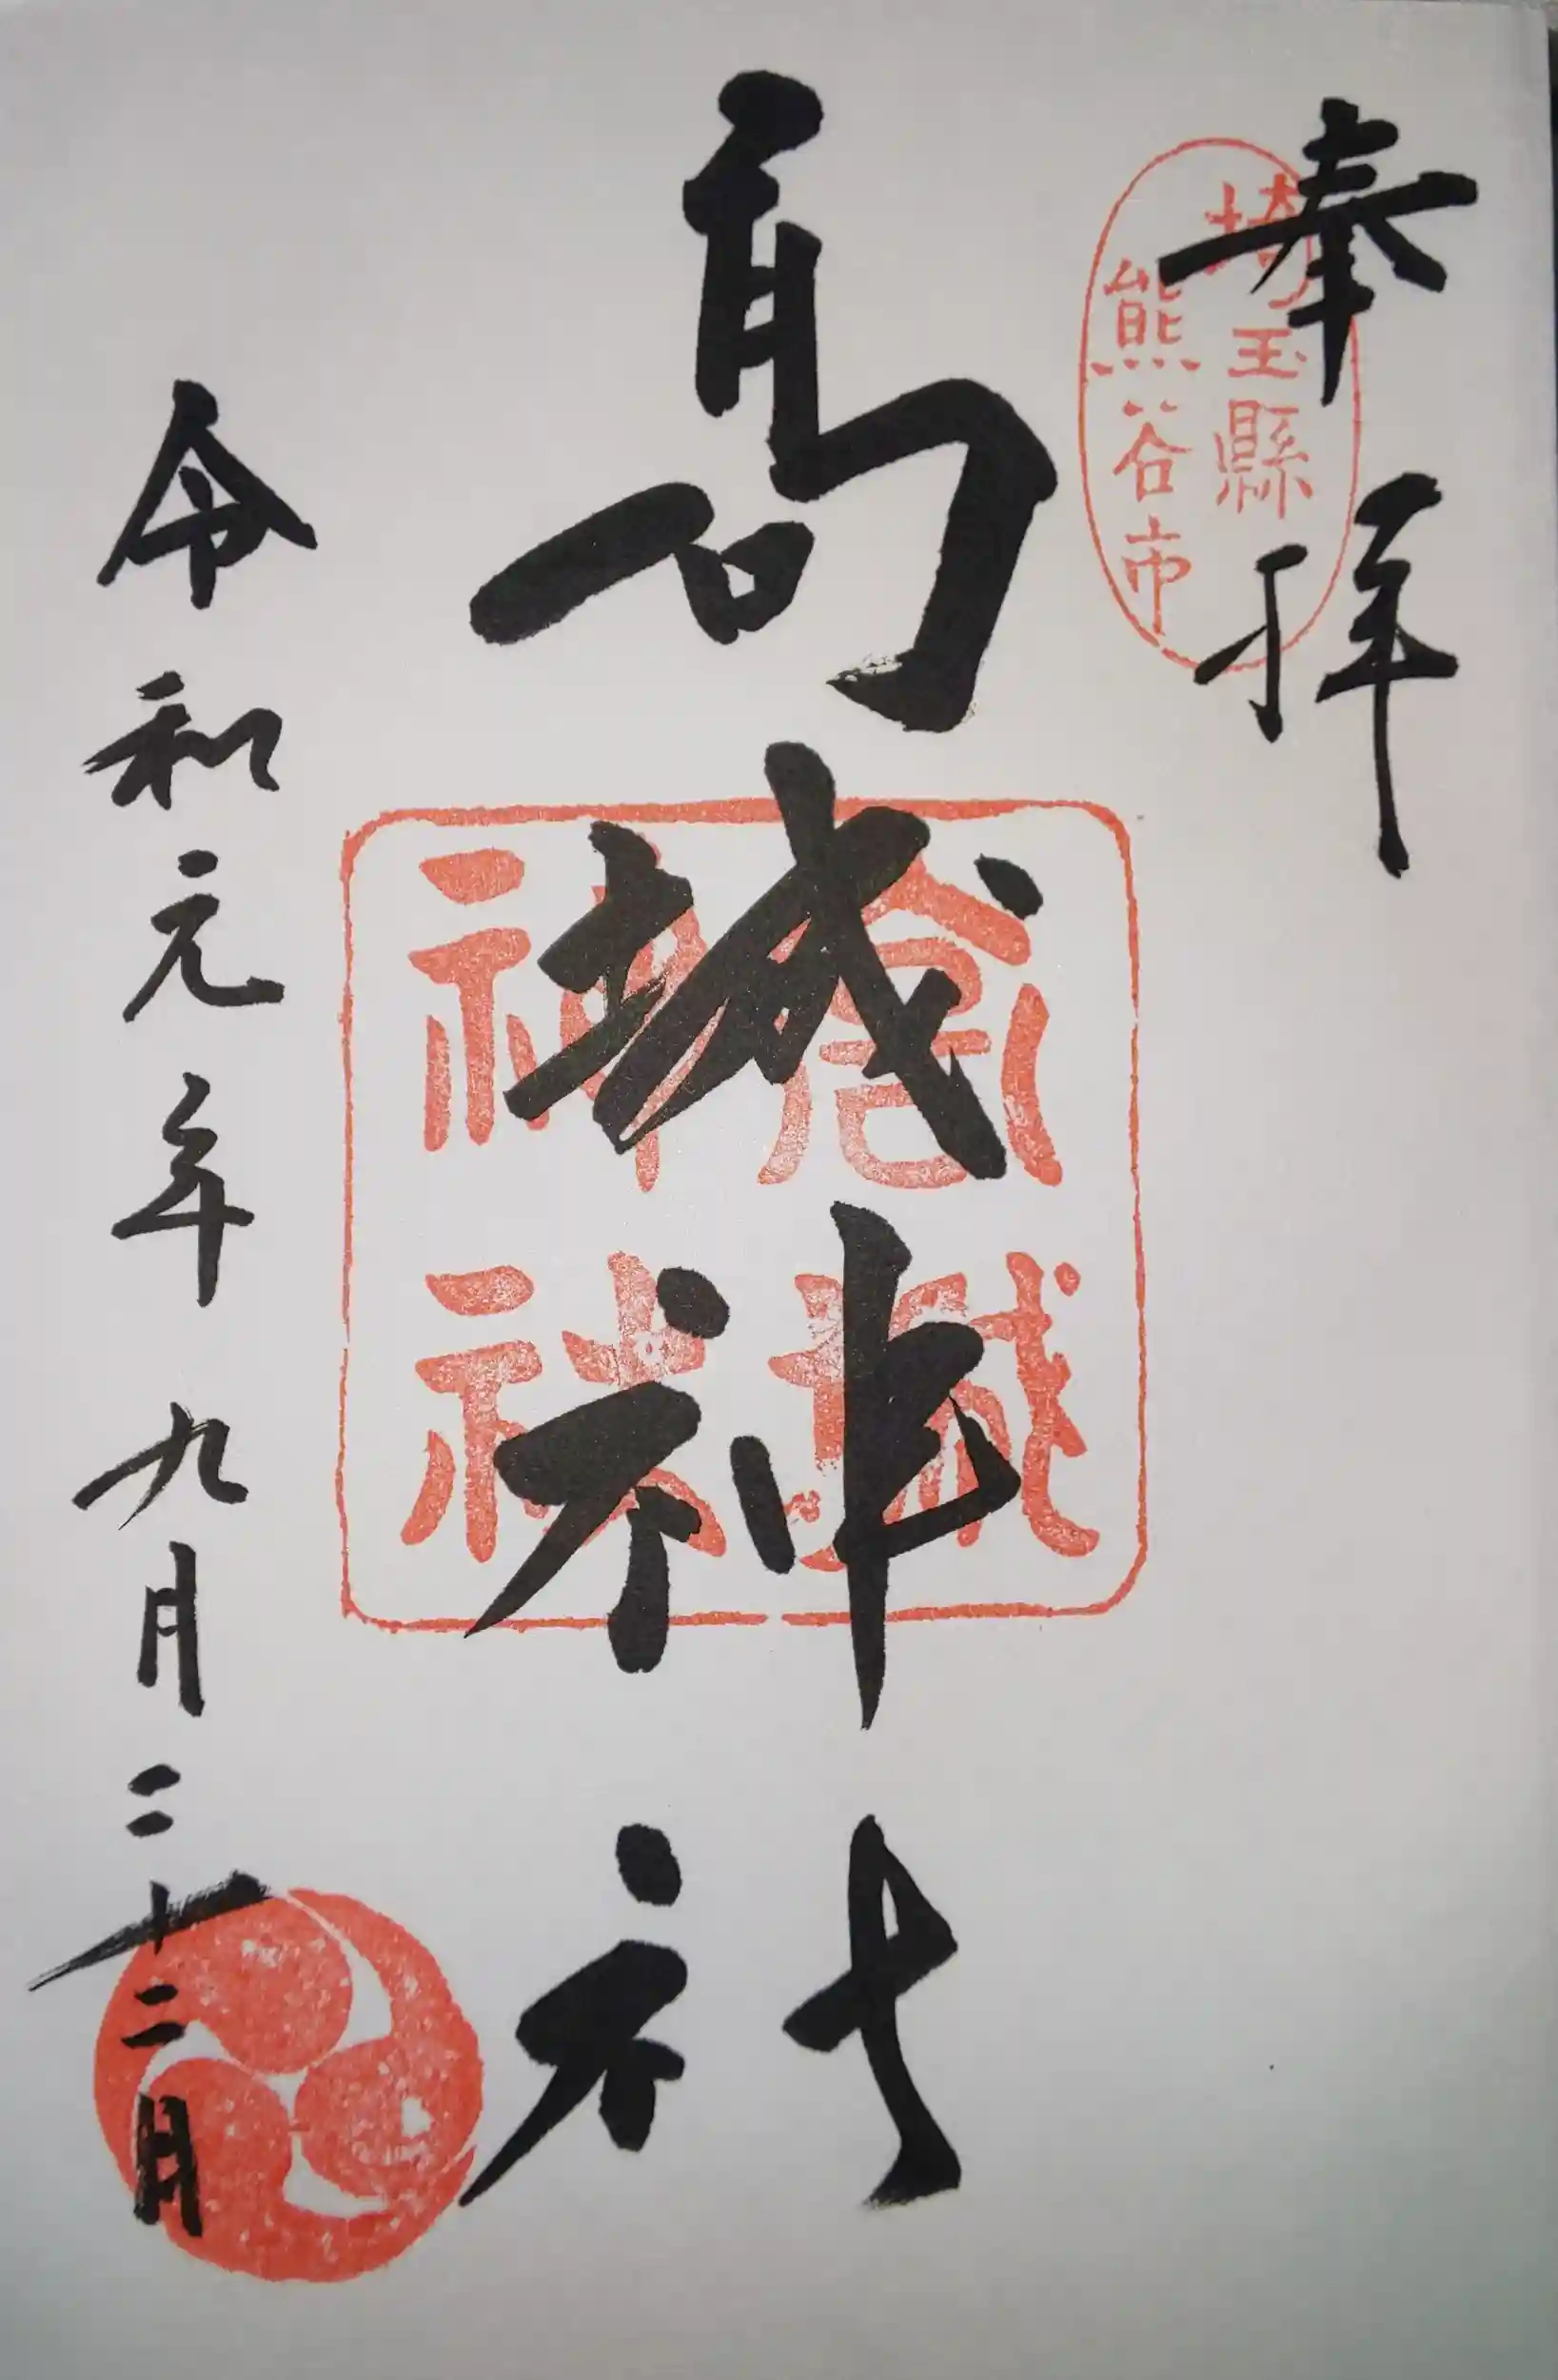 奉拝
埼玉縣
熊谷市
髙城神社
高城
神社
令和元年九月二十二日